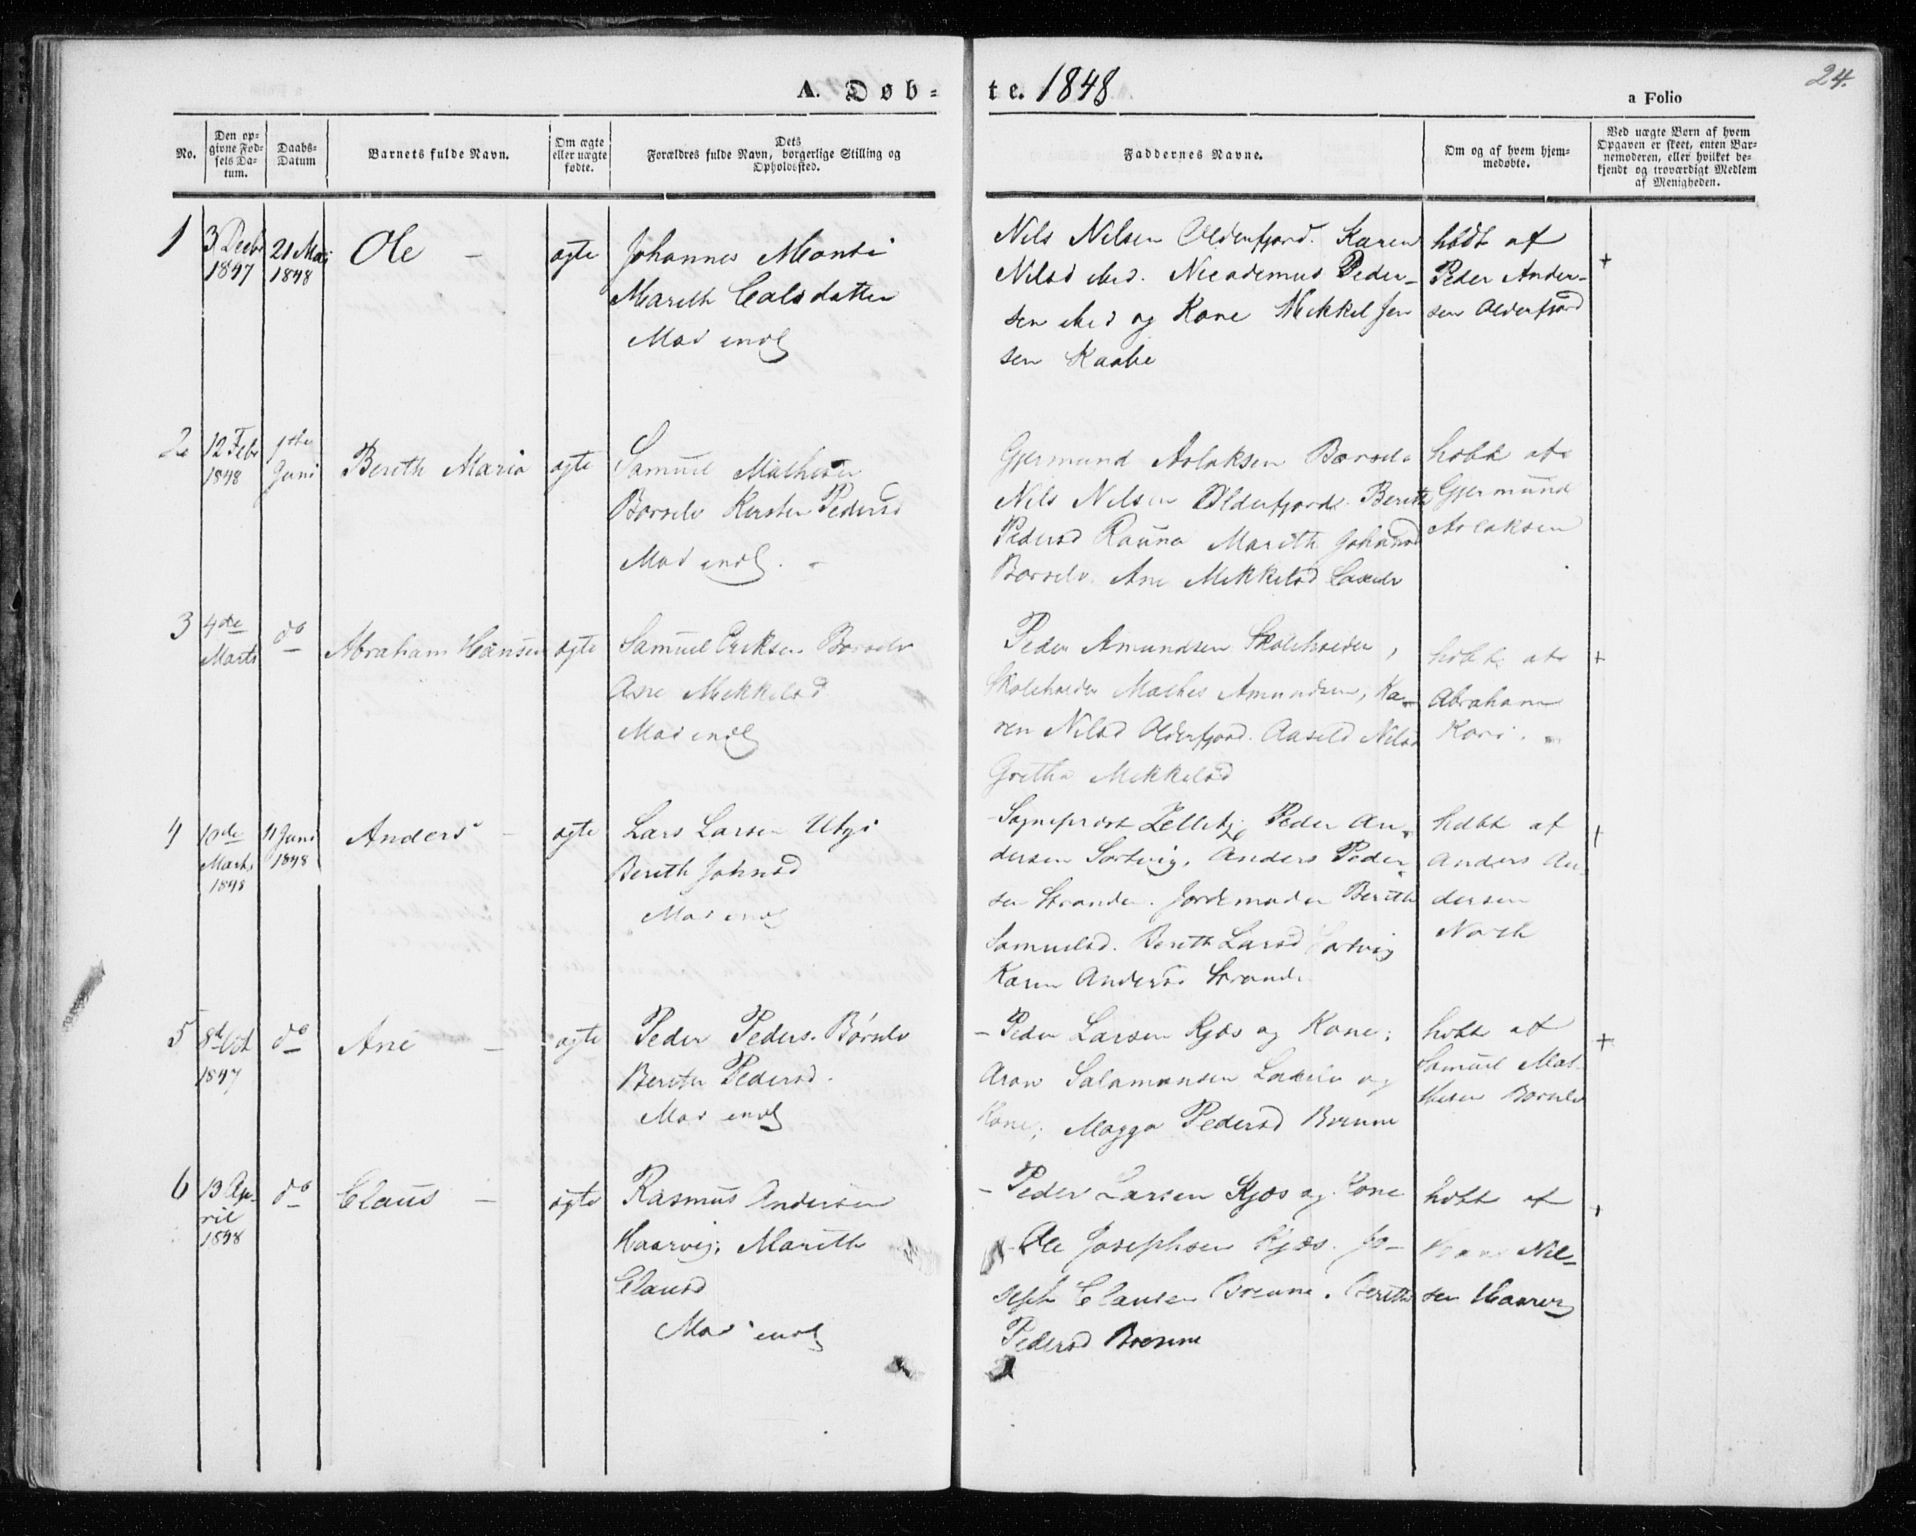 24.
A. Døb=
te. 1848
a Folio
No.
Den op=
givne Fød=
sels Da=
tum.
Daabs=
Datum
Barnets fulde Navn.
Om ægte
eller uægte
fødte.
Dets
Forældres fulde Navn, borgerlige Stilling og
Opholdssted.
Faddernes Navne.
Om og af hvem hjem=
medøbte.
Ved uægte Børn af hvem
Opgaven er skeet, enten Bar=
nemoderen, eller hvilket be=
kjendt og troværdigt Medlem
af Menigheden.
1
3 Decbr
1847
21 Mai
1848
Ole –
ægte
Johannes
Mareth
Nils Nilsen Olderfjord. Karen
Nilsd ibid. Nicodemus Peder-
sen ibid og Kone Mikkel Jen
sen
hødt af
Peder Ander-
sen Olderfjord
+
2
12 Febr
1848
Juni
Berith Maria
ægte
Samuel
Børselv Kersten Pedersd
Gjermund Aslaksen Børselv
Nils Nilsen Olderfjord. Berith
Pedersd Marith Johansd
Børselv. Ane Mikkelsd Laxelv
høbt af
Gjermund
Aslaksen
3
4de
Marts
do
Abraham Hansen
ægte
Samuel Eriksen Børselv
Ane Mikkelsd
Peder Amundsen Skoleholder,
Skoleholder Mathis Amundsen, Ka-
ren Nilsd Olderfjord. Nilsd
Gretha Mikkelsd
høbt af
Abraham
+
4
10de
Marts
1848
11 Juni
1848
Anders –
ægte
Lars Larsen
Berith Johnsd
Sognepræst Zetlitz, Peder An-
dersen Sortvig, Anders Peder-
sen Strande. Jordemoder Berith
Samuelsd. Berith Larsd Sortvig
Karen Andersd Strande
høbt af
Anders An-
dersen
+
5
8d Oct
1847
do
Ane –
ægte
Peder Peders. Børselv
Pedersd.
– Peder Larsen Kjæs og Kone;
Aron Salamonsen Laxelv og
Kone; Magga Pedersd Brenne
høbt af
Samuel Mat-
hesen Børselv
+
6
13 Ap-
ril
1848
do
Claus –
ægte
Rasmus Andersen
Haarvig, Marith
Clausd
– Peder Larsen Kjæs og Kone
Ole Josephsen Kjæs. Jo-
seph Clausen Brenne. Berith
Pedersd Brenne
høbt af
Hans Nil-
sen Haarvig
+